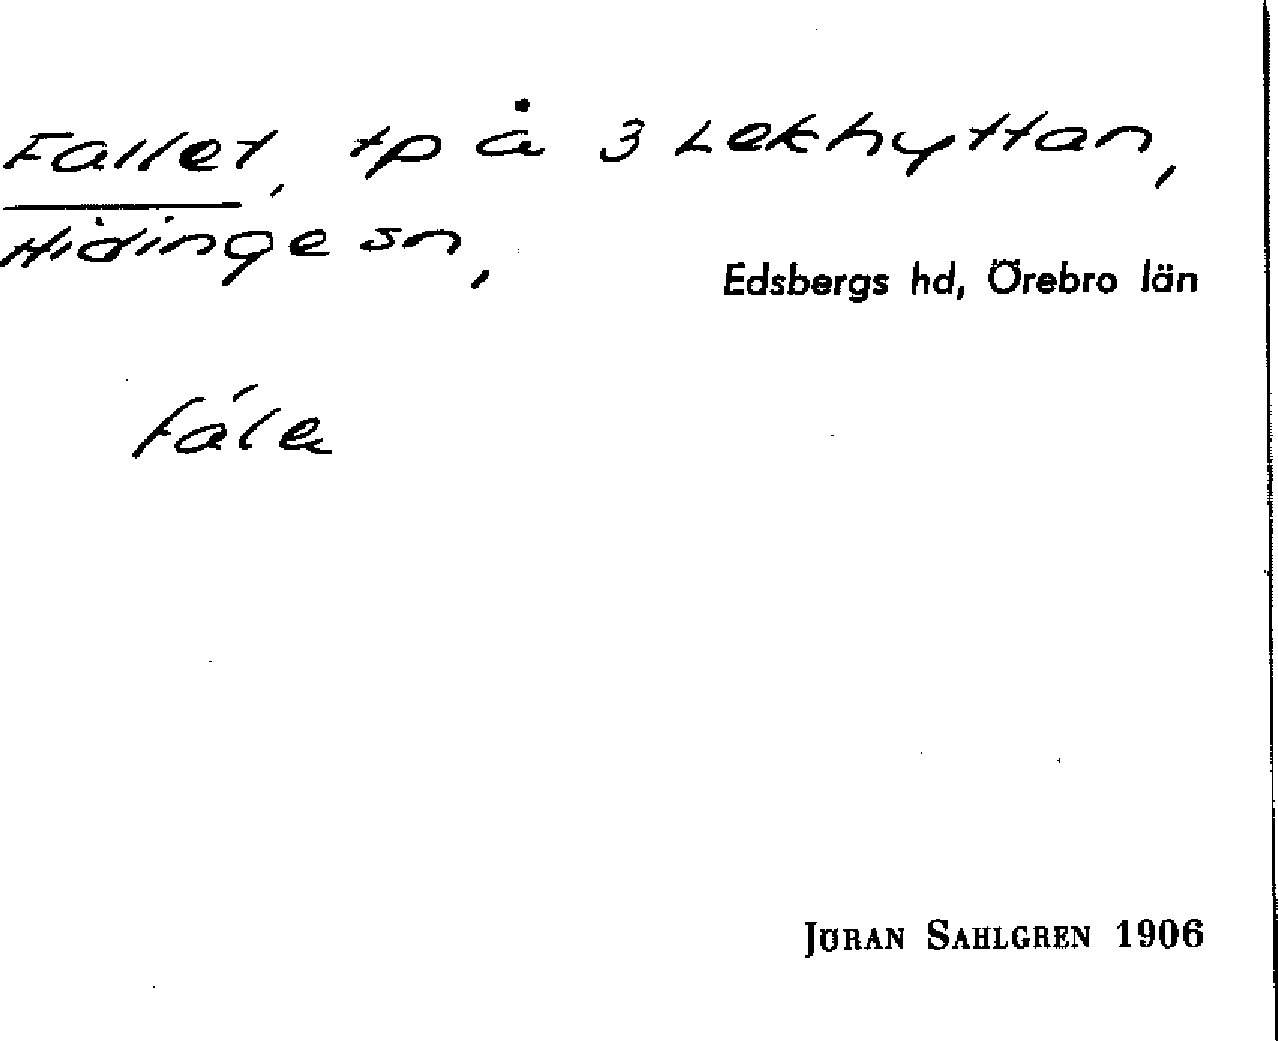 Fallet, tp å 3 Lekhyttan,
Hidinge sn,
Edsbergs hd, Örebro län
fále
JÖRAN SAHLGREN 1906